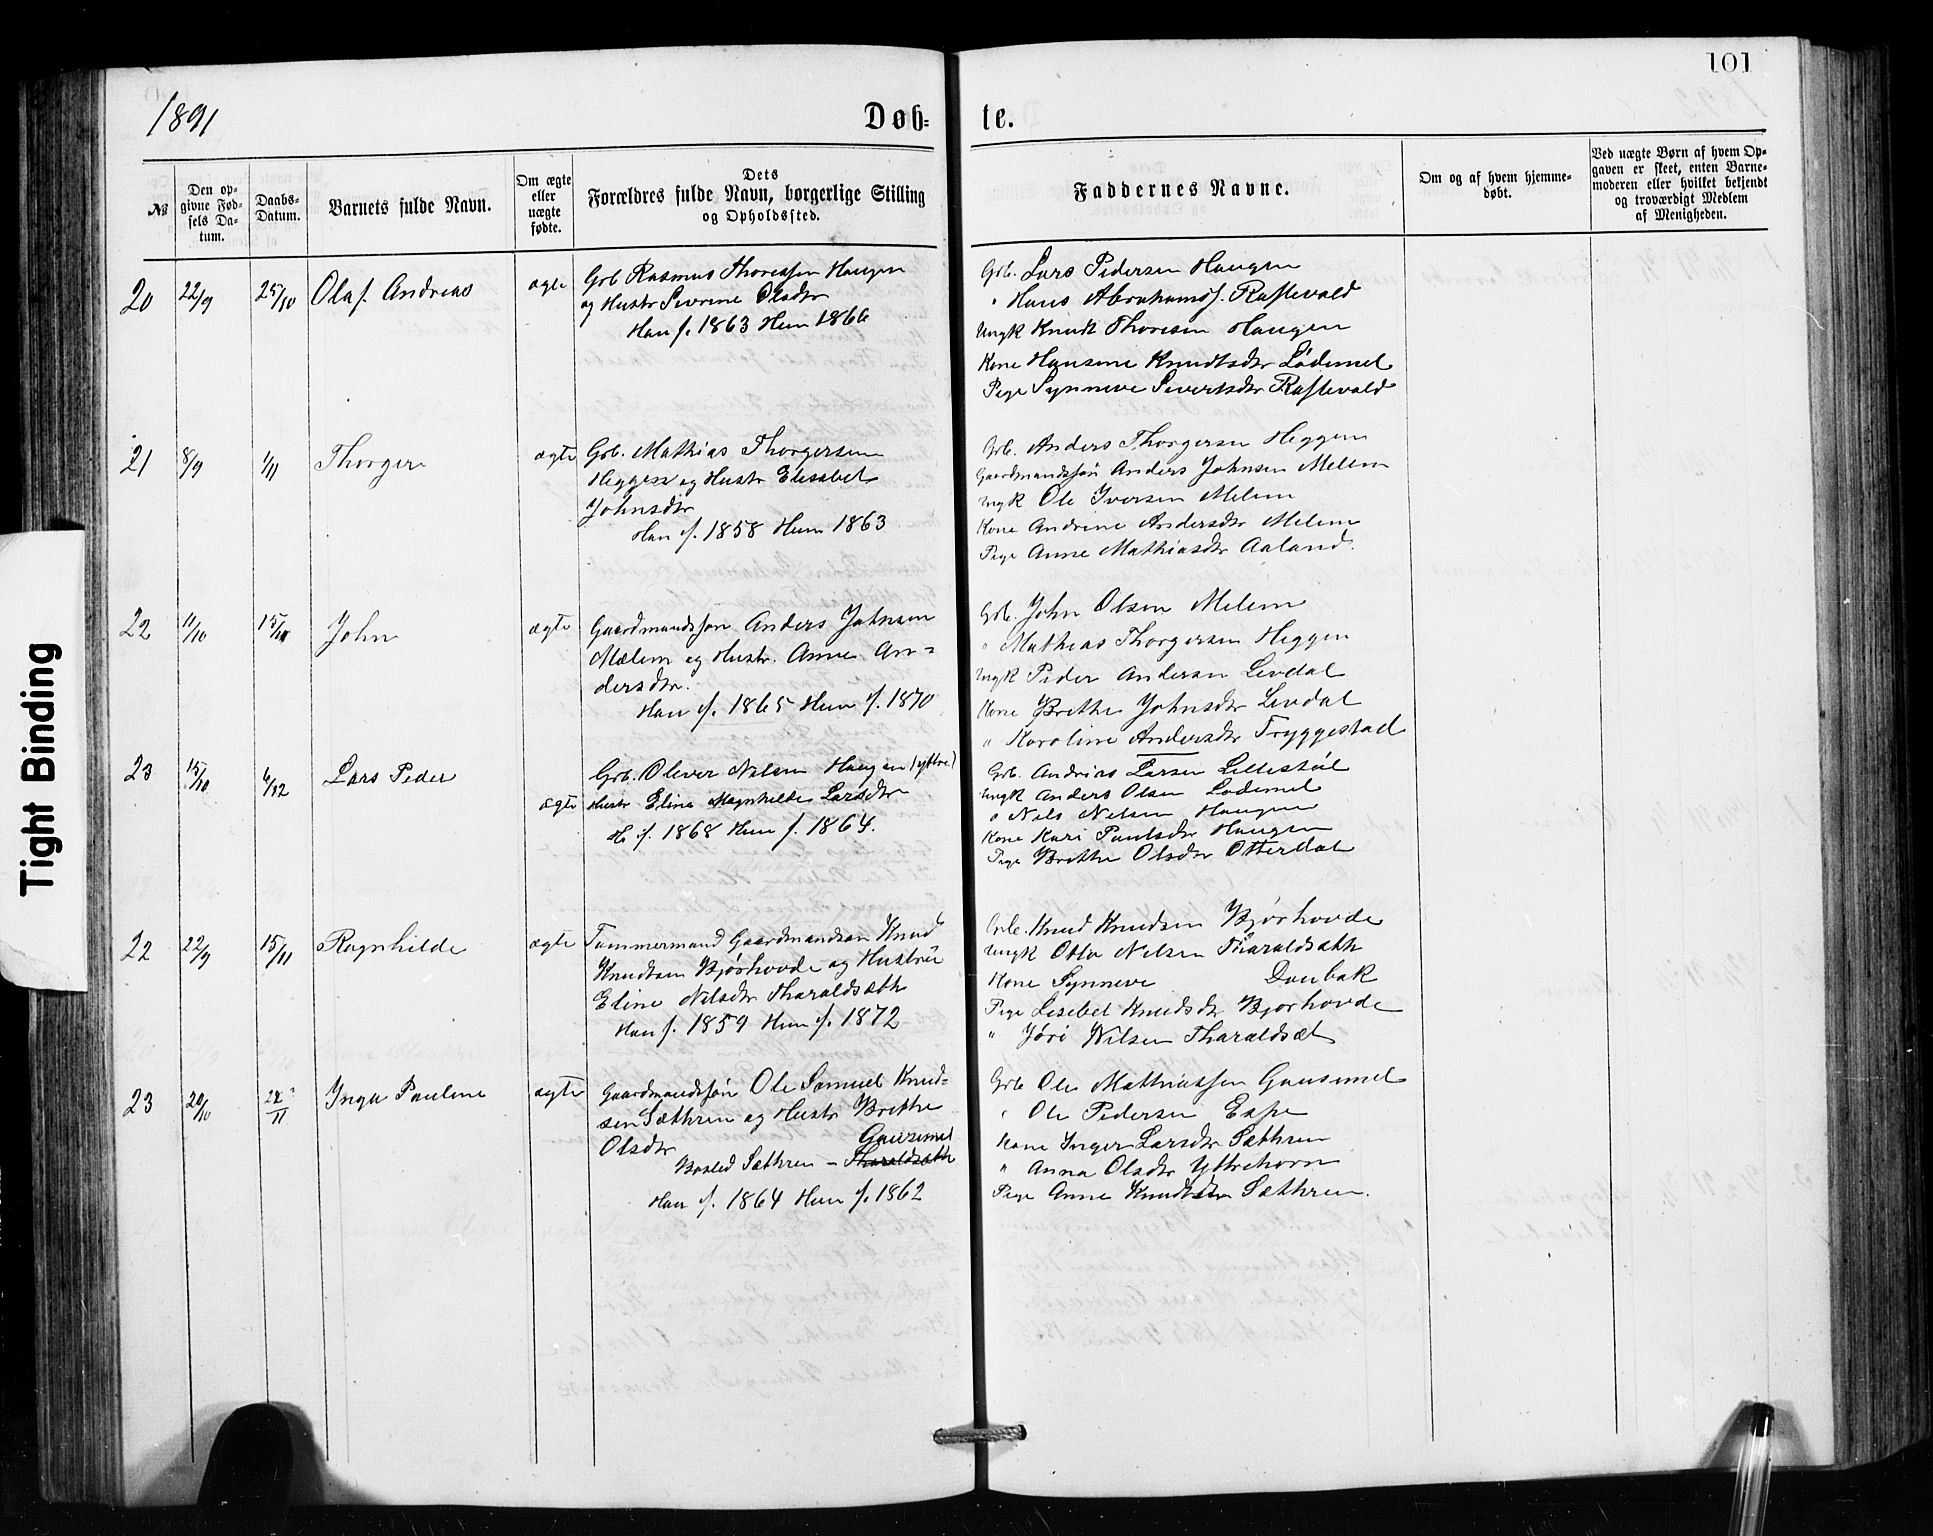 101
1891
Døb-
te.
№
Den op-
givne Fød-
sels Da-
tum.
Daabs-
Datum.
Barnets fulde Navn.
Om ægte
eller
uægte
fødte.
Dets
Forældres fulde Navn, borgerlige Stilling
og Opholdssted.
Faddernes Navne.
Om og af hvem hjemme-
døbt.
Ved uægte Børn af hvem Op-
gaven er skeet, enten Barne-
moderen eller hvilket bekjendt
og troværdigt Medlem
af Menigheden.
20 22/9 25/10 Olaf Andreas ægte
Grb Rasmus Thoressen Haugen
og Hustr Severine Olsdtr
Han f. 1863 Hun 1866
Grb. Lars Pedersen Haugen
" Hans Abrahamsf. Raftevold
Ungk Knudt Thoresen Haugen
Kone Hansene Knudtsdtr Lødemel
Pige Synneve Sivertsdtr Raftevold
21 8/9 1/11 Thorger ægte
Grb. Mathias Thorgersen
Heggen og Hustr Elisabet
Johnsdtr
Han f. 1858 Hun 1863
Grb. Anders Thorgersen Heggen
Gaardmandssøn Anders Johnsen Melem
Ungk Ole Iversen Melem
Kone Andrine Andersdtr Melem
Pige Anne Mathiasdtr Aaland.
22 11/10 15/11 John ægte
Gaardmandssøn Anders Johnsen
Mælem og Hustr. Anne An-
dersdtr.
Han f. 1865 Hun f. 1870
Grb. John Olsen Melem
" Mathias Thorgersen Heggen
Ungk Peder Andersen Levdal
Kone Brithe Johnsdtr Levdal
" Karoline Andersdtr Tryggestad
23 15/10 6/12 Lars Peder ægte
Grb. Oliver Nilsen Haugen (yttre)
Hustr Eline Magnhilde Larsdtr
H. f. 1868 Hun f. 1864.
Grb. Andrias Larsen Lillestøl
Ungk Anders Olsen Lødemel
" Nils Nilsen Haugen
Kone Kari Paulsdtr Haugen
Pige Brithe Olsdtr Otterdal
22 22/9 15/11 Ragnhilde ægte
Tømmermand Gaardmandsøn Knud
Knudtsen Bjørhovde og Hustrü
Eline Nilsdtr Tharaldsæth
Han f. 1859 Hun f. 1872
Grb. Knud Knudsen Bjørhovde
Ungk Otto Nilsen Tharaldsæth
Kone Synneve Doubak
Pige Lisebet Knudsdtr Bjørhovde
" Jøri Nilsen Tharaldsæt
23 20/10 22/11 Inga Pauline ægte
Gaardmandssøn Ole Samuel Knud-
sen Sæthren og Hustr Brithe
Olsdtr Gausemel
Bosted Sæthren – Tharaldsæth
Han f. 1864 Hun f. 1862
Grb Ole Mathiassen Gausemel
" Ole Pedersen Espe
Kone Inger Larsdtr Sæthren
" Anna Olsdtr Yttrehorn
Pige Anne Knudtsdtr Sæthren.
Tight Binding